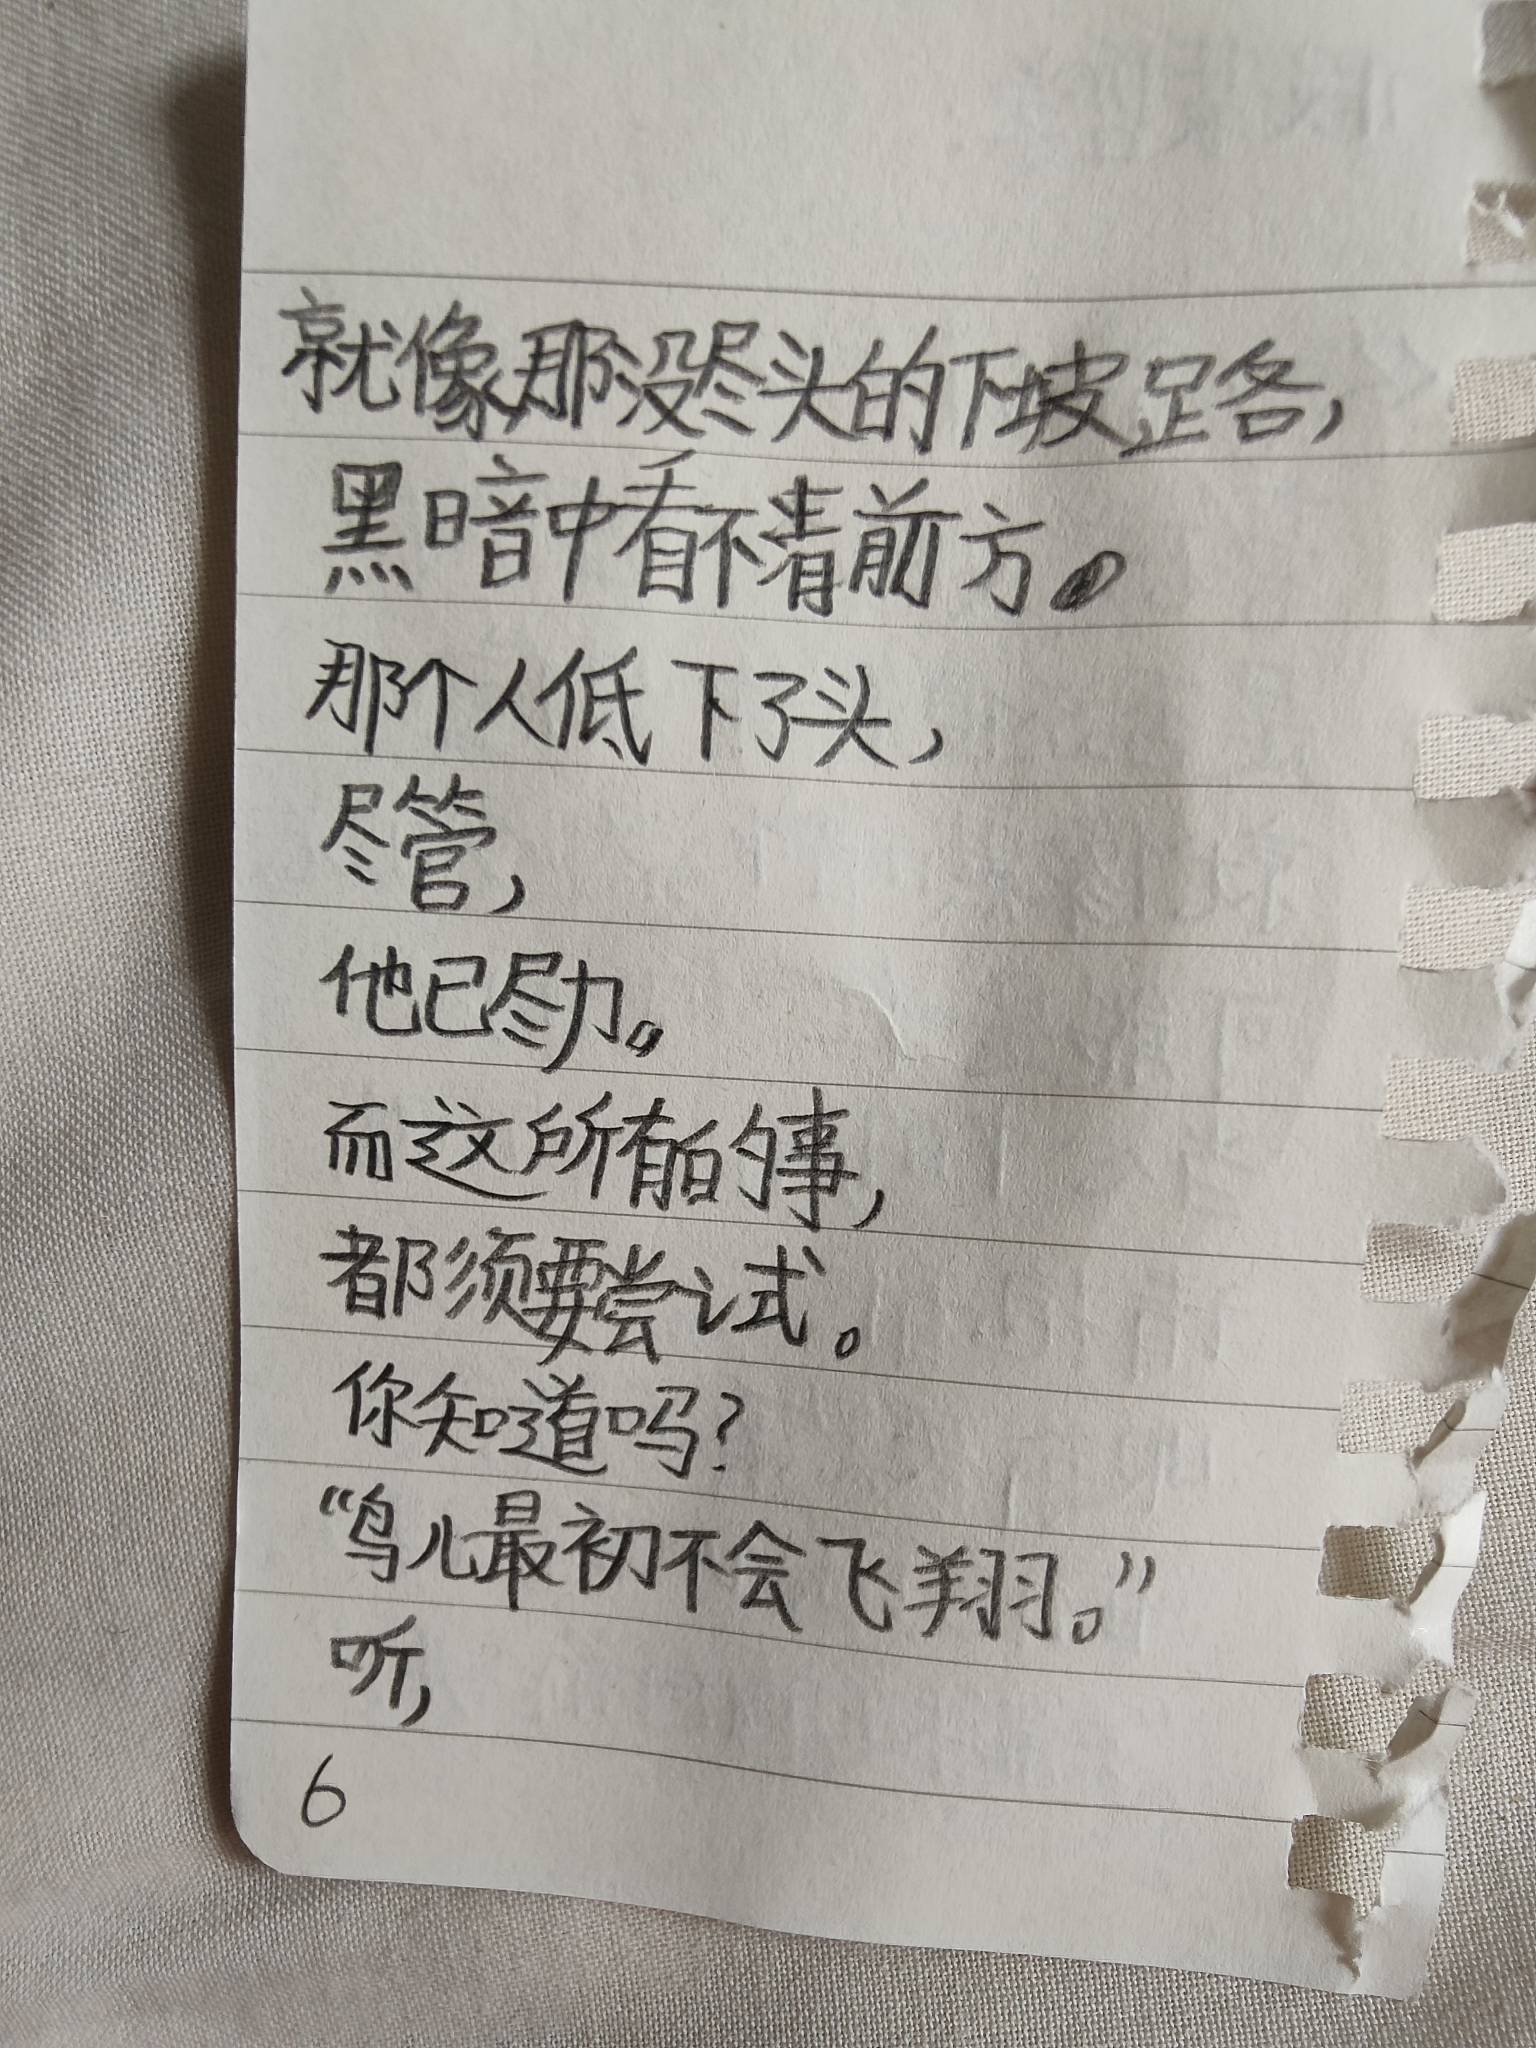 就像那没尽头的下坡路，
黑暗中看不清前方。
那个人低下了头，
尽管，
他已尽力。
而这所有的事，
都须要尝试。
你知道吗？
“鸟儿最初不会飞翔。”
听，
6